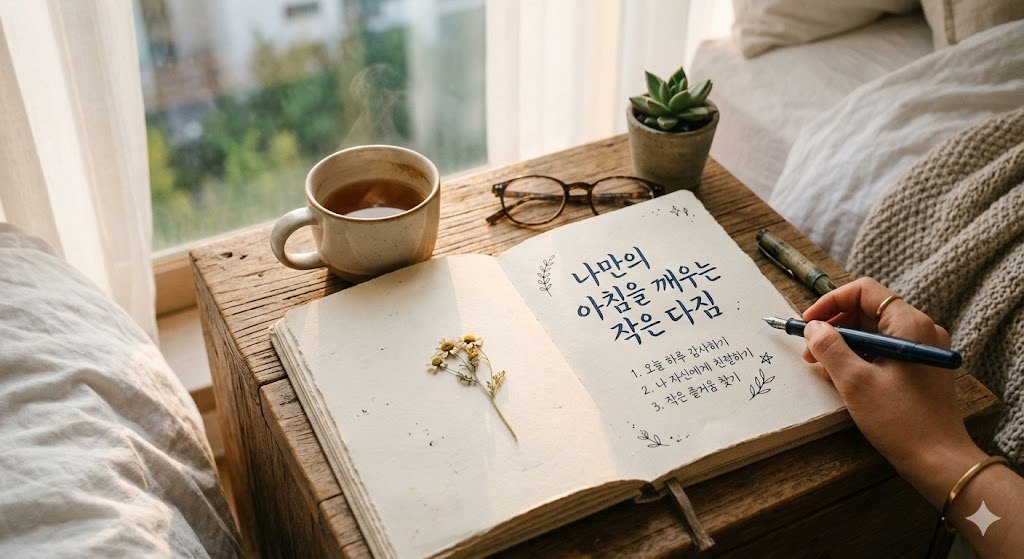 나만의
아침을 깨우는
작은 다짐
1. 오늘 하루 감사하기
2. 나 자신에게 친절하기
3. 작은 즐거움 찾기